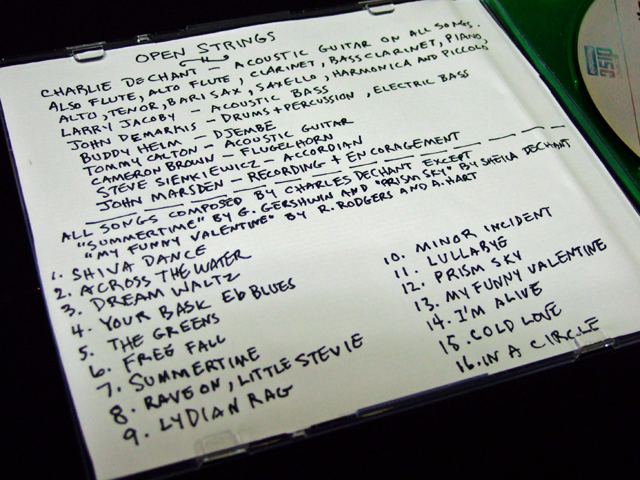 OPEN STRINGS
CHARLIE DECHANT - ACOUSTIC GUITAR ON ALL SONGS.
ALSO FLUTE, ALTO FLUTE, CLARINET, BASS CLARINET, PIANO,
ALTO, TENOR, BARI SAX, SAXELLO, HARMONICA AND PICCOLO
LARRY JACOBY - ACOUSTIC BASS
JOHN DEMARKIS - DRUMS + PERCUSSION, ELECTRIC BASS
BUDDY HELM - DJEMBE
TOMMY CALTON - ACOUSTIC GUITAR
CAMERON BROWN - FLUGELHORN
STEVE SIENKIEWICZ - ACCORDIAN
JOHN MARSDEN - RECORDING + ENCORAGEMENT
ALL SONGS COMPOSED BY CHARLES DECHANT EXCEPT
"SUMMERTIME" BY G. GERSHWIN AND "PRISM SKY" BY SHEILA DECHANT
"MY FUNNY VALENTINE" BY R. RODGERS AND A. HART
1. SHIVA DANCE
2. ACROSS THE WATER
3. DREAM WALTZ
4. YOUR BASIC Eb BLUES
5. THE GREENS
6. FREE FALL
7. SUMMERTIME
8. RAVE ON, LITTLE STEVIE
9. LYDIAN RAG
10. MINOR INCIDENT
11. LULLABYE
12. PRISM SKY
13. MY FUNNY VALENTINE
14. I'M ALIVE
15. COLD LOVE
16. IN A CIRCLE